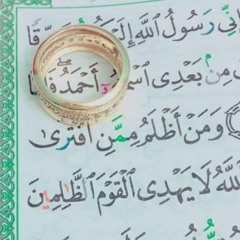 نِّى رَسُولُ ٱللَّهِ إِلَيْ
مِنۢ بَعْدِى ٱسْمُهُۥٓ أَحْمَدُ
وَمَنْ أَظْلَمُ مِمَّنِ ٱفْتَرَىٰ
ٱللَّهُ لَا يَهْدِى ٱلْقَوْمَ ٱلظَّٰلِمِينَ